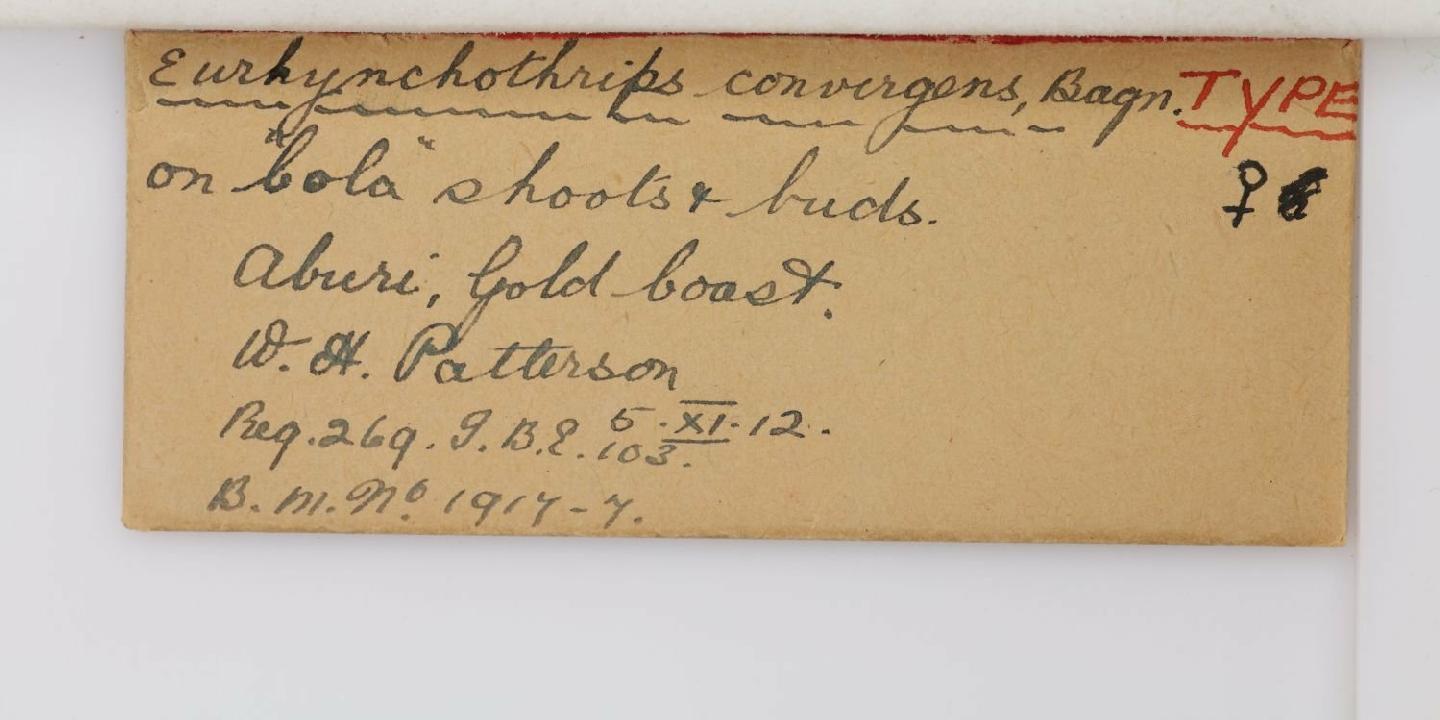 Eurhynchothrips convergens, Bagn. TYPE
on "bola" shoots & buds. ♀
Aburi, Gold Coast.
W. H. Patterson
Reg. 269. I.B.E. 5.XI.12.
103.
B.M. No. 1917-7.